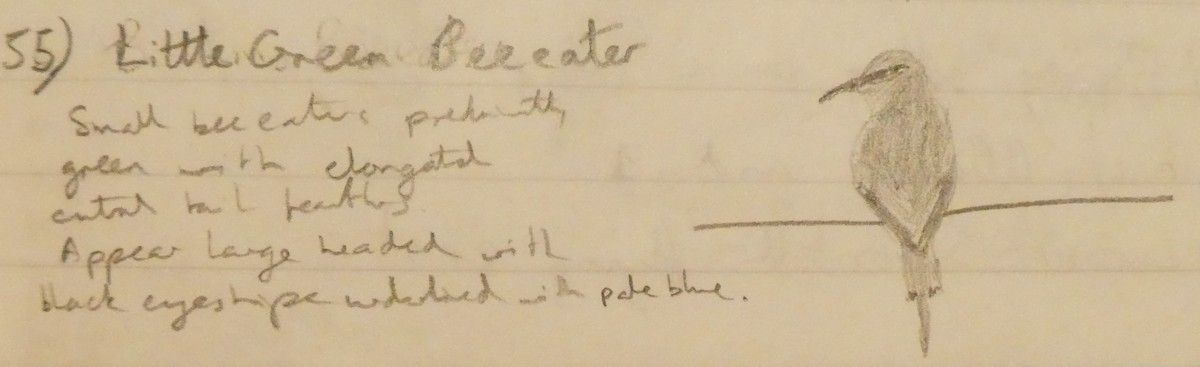 55) Little Green Bee eater
Small bee eaters predominantly
green with elongated
central tail feathers.
Appear large headed with
black eyestripe underlined with pale blue.